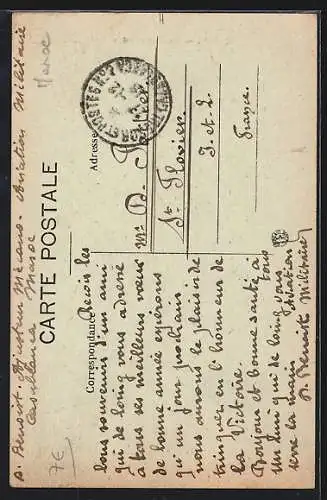 D. Benoist. Ajusteur Mécano. Aviation Militaire
Casablanca Maroc
Maroc
CARTE POSTALE
Correspondance
Adresse
Reçois les
bons souvenir d'un ami
qui de loing vous adrese
a tous ses meilleurs vœux
de bonne année espérons
qu'un jour prochain
nous aurons le plaisir de
trinquer en l'honneur de
la Victoire.
Bonjour et bonne santé a
tous
un ami qui de loing vous
serre la main
D. Benoist
Mr D.
St Flovier
I-et-L.
France.
7€